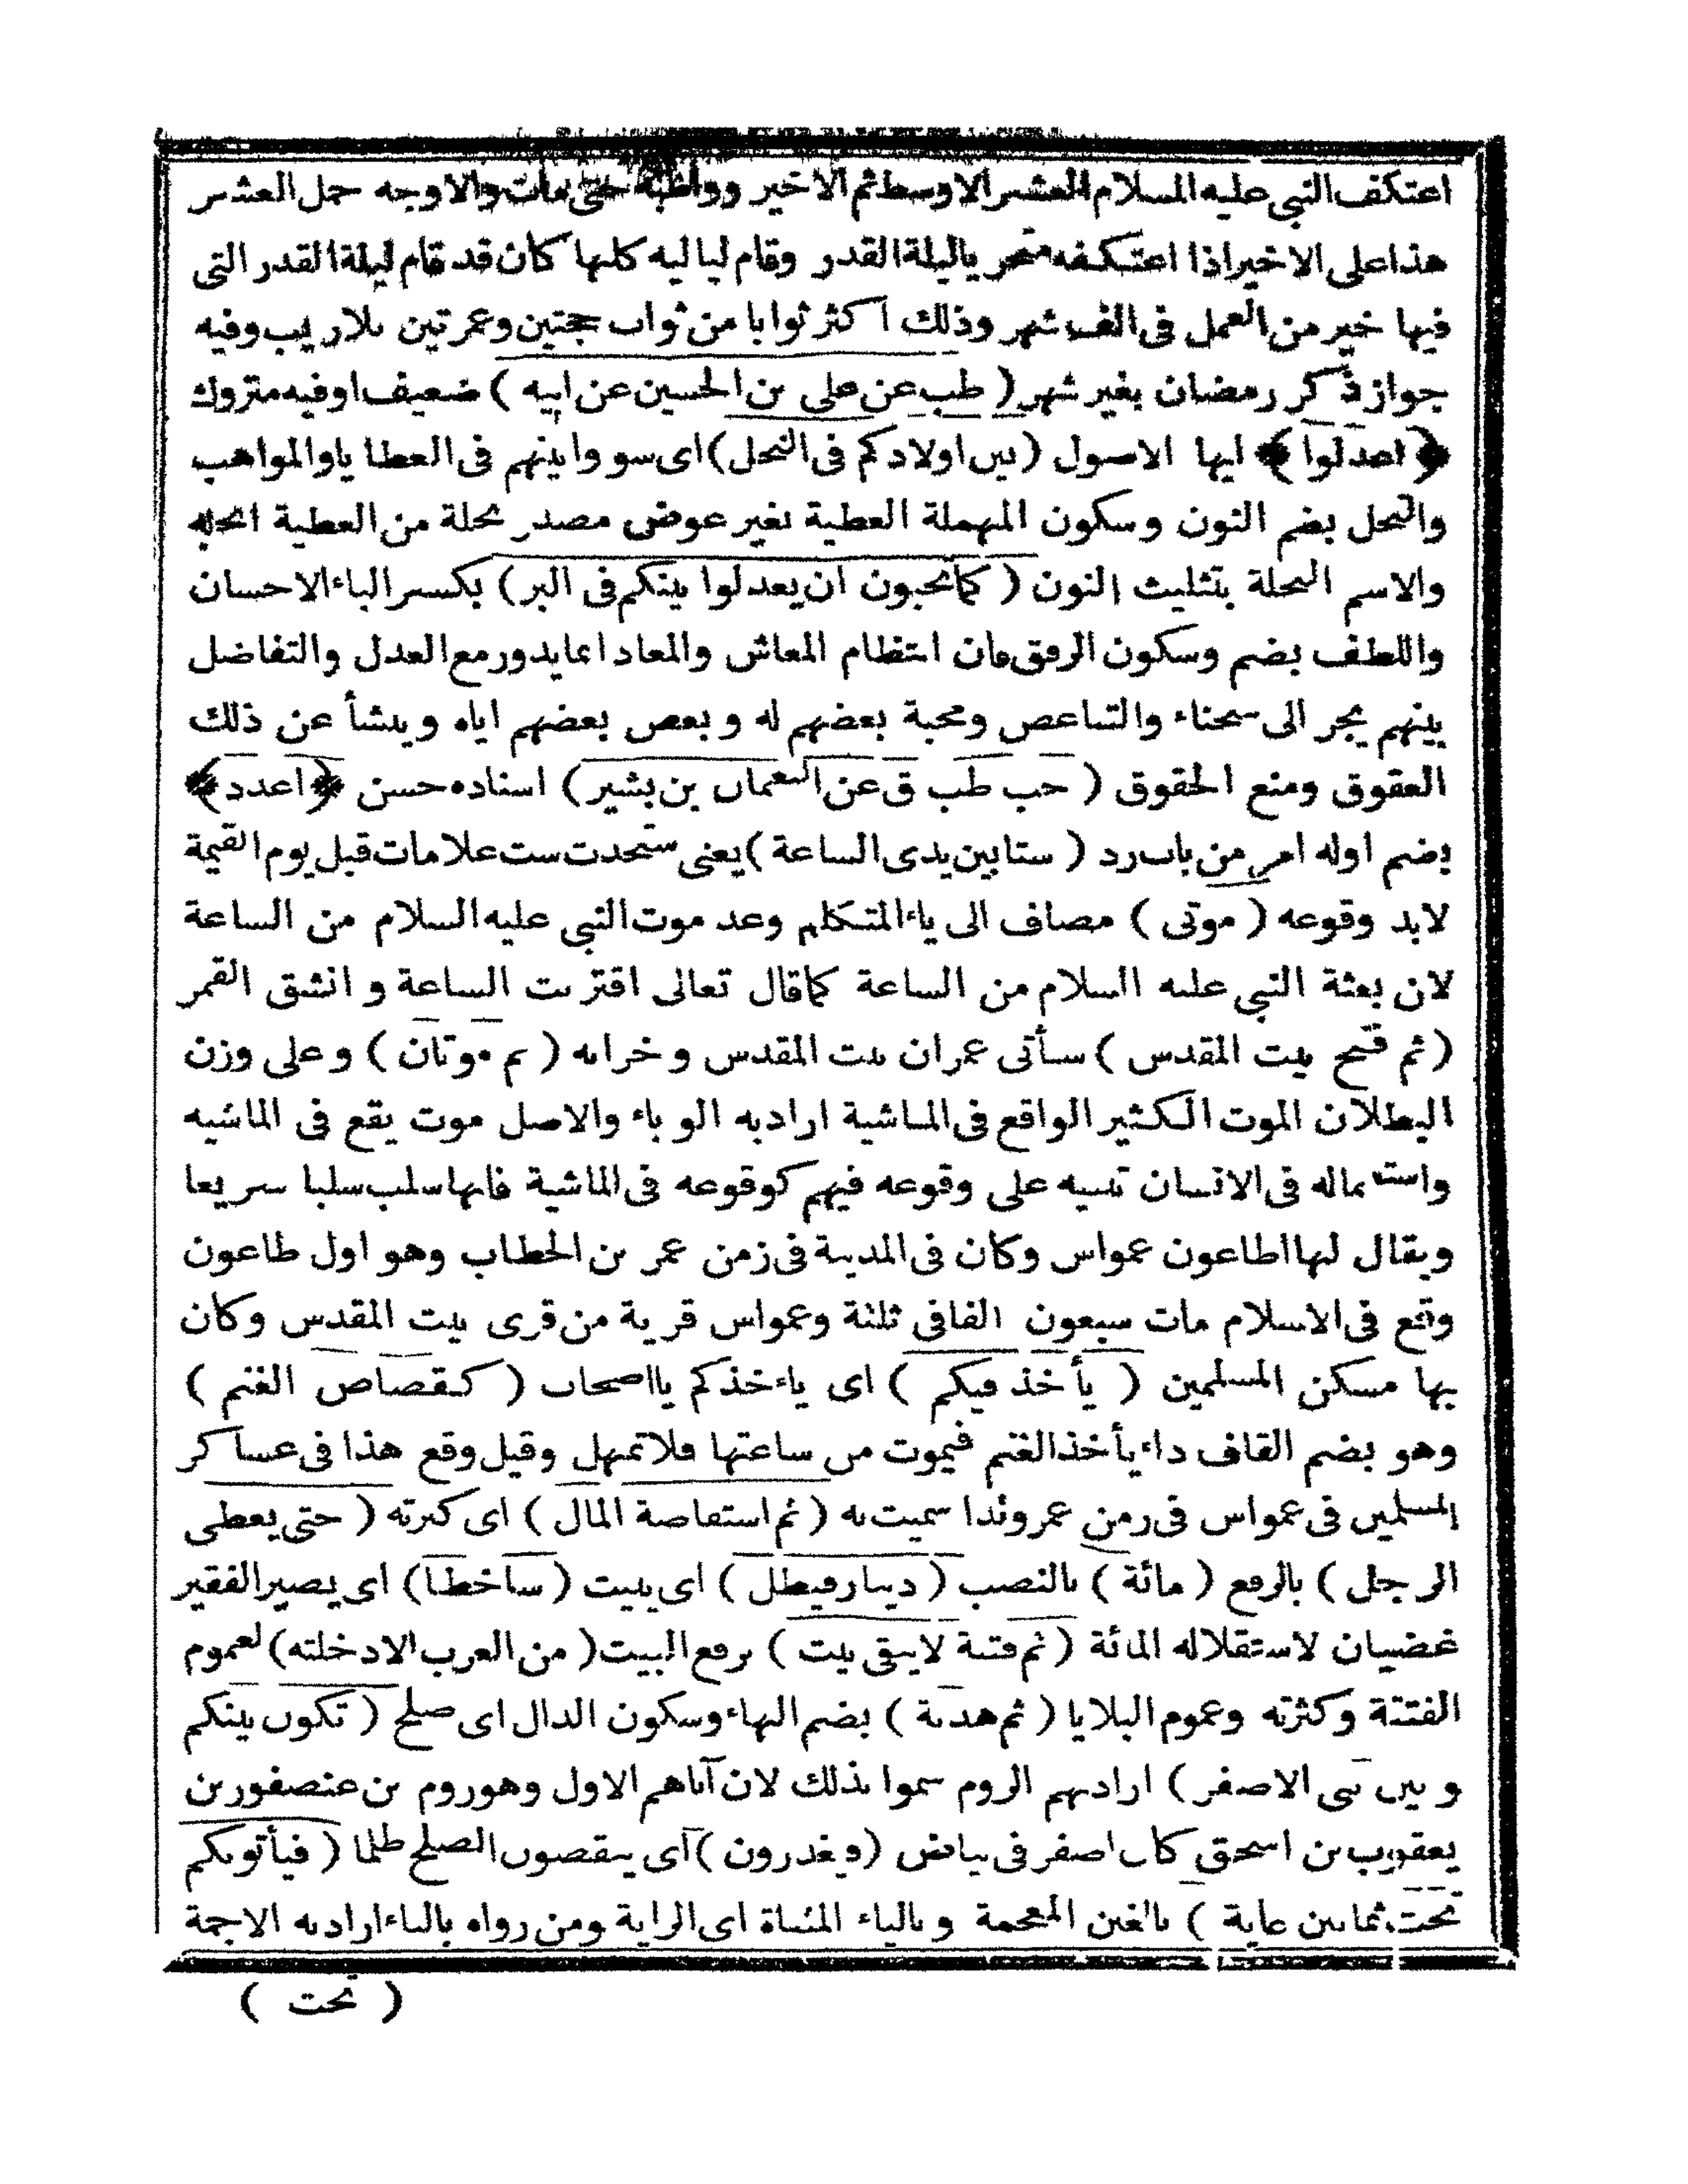 اعتكف النبى عليه السلام العشر الاوسط ثم الاخير وواظبه حتى مات والاوجه حمل العشر
هذا على الاخير اذا اعتكفه متحريا ليلة القدر وقام لياليه كلها كان قد قام ليلة القدر التى
فيها خير من العمل فى الف شهر وذلك اكثر ثوابا من ثواب حجتين وعمرتين بلاريب وفيه
جواز ذكر رمضان بغير شهر ( طب عن على بن الحسين عن ابيه ) ضعيف اوفيه متروك
﴿ اعدلوا ﴾ ايها الاصول (بين اولادكم فى النحل) اى سووا بينهم فى العطايا والمواهب
والنحل بضم النون وسكون المهملة العطية بغير عوض مصدر نحلة من العطية انحله
والاسم النحلة بتثليث النون ( كما تحبون ان يعدلوا بينكم فى البر) بكسر الباء الاحسان
واللطف بضم وسكون الرفق فان انتظام المعاش والمعاد انما يدور مع العدل والتفاضل
بينهم يجر الى شحناء والتباغض ومحبة بعضهم له و بغض بعضهم اياه و ينشأ عن ذلك
العقوق ومنع الحقوق ( حب طب ق عن النعمان بن بشير) اسناده حسن ﴿اعدد﴾
بضم اوله امر من باب رد ( ستا بين يدى الساعة ) يعنى ستحدث ست علامات قبل يوم القيمة
لابد وقوعه ( موتى ) مضاف الى ياء المتكلم وعد موت النبى عليه السلام من الساعة
لان بعثة النبى عليه السلام من الساعة كما قال تعالى اقتربت الساعة و انشق القمر
(ثم فتح بيت المقدس ) سأتى عمران بيت المقدس و خرابه ( ثم موتان ) و على وزن
البطلان الموت الكثير الواقع فى الماشية ارادبه الوباء والاصل موت يقع فى الماشيه
واستعماله فى الانسان تنبيه على وقوعه فيهم كوقوعه فى الماشية فانها سلب سلبا سريعا
ويقال لها اطاعون عمواس وكان فى المدينة فى زمن عمر بن الخطاب وهو اول طاعون
وقع فى الاسلام مات سبعون الفا فى ثلثة وعمواس قرية من قرى بيت المقدس وكان
بها مسكن المسلمين ( يأخذ فيكم ) اى ياءخذكم يا اصحاب ( كقصاص الغنم )
وهو بضم القاف داء يأخذ الغنم فيموت من ساعتها فلا تمهل وقيل وقع هذا فى عساكر
المسلمين فى عمواس فى زمن عمر وندا سميت به ( ثم استفاضة المال ) اى كثرته ( حتى يعطى
الرجل ) بالرفع ( مائة ) بالنصب ( دينار فيظل ) اى يبيت ( ساخطا) اى يصير الفقير
غضبان لاستقلاله المائة ( ثم فتنة لايبقى بيت ) برفع البيت ( من العرب الادخلته) لعموم
الفتنة وكثرته وعموم البلايا ( ثم هدنة ) بضم الهاء وسكون الدال اى صلح ( تكون بينكم
و بين بنى الاصفر ) ارادبهم الروم سموا بذلك لان آباهم الاول وهو روم بن عنصفور بن
يعقوب بن اسحق كان اصفر فى بياض (و يغدرون ) اى ينقصون الصلح ظلما ( فيأتونكم
تحت ثمانين غاية ) بالغين المعجمة و بالياء المثناة اى الراية ومن رواه بالباء ارادبه الاجمة
( تحت )